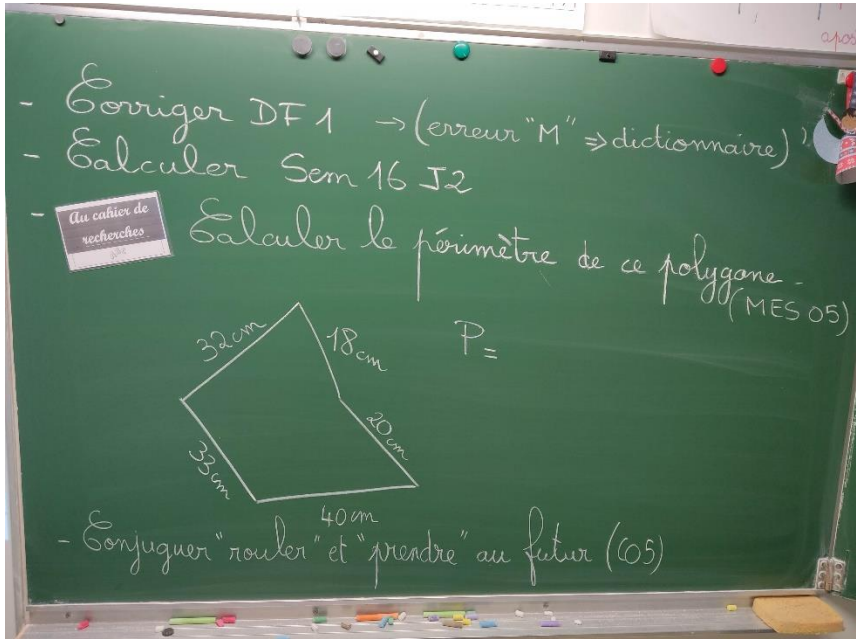 apos
- Corriger DF 1 → (erreur "M" => dictionnaire)
- Calculer Sem 16 J2
- Au cahier de
recherches
Calculer le périmètre de ce polygone.
(MES 05)
32cm
18cm
P=
20cm
33cm
40cm
- Conjuguer "rouler" et "prendre" au futur (C05)